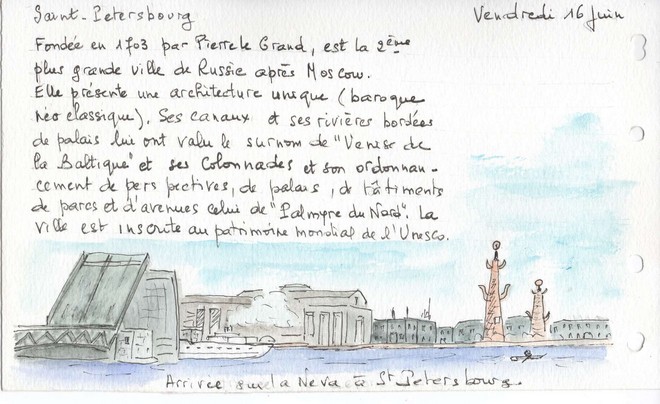 Saint-Petersbourg
Vendredi 16 juin
Fondée en 1703 par Pierre le Grand, est la 2ème
plus grande ville de Russie après Moscow.
Elle présente une architecture unique (baroque
néo classique). Ses canaux et ses rivières bordées
de palais lui ont valu le surnom de "Venise de
la Baltique" et ses colonnades et son ordonnan-
cement de perspectives, de palais, de bâtiments
de parcs et d'avenues celui de "Palmyre du Nord". La
ville est inscrite au patrimoine mondial de l'Unesco.
Arrivée sur la Neva à St Petersbourg